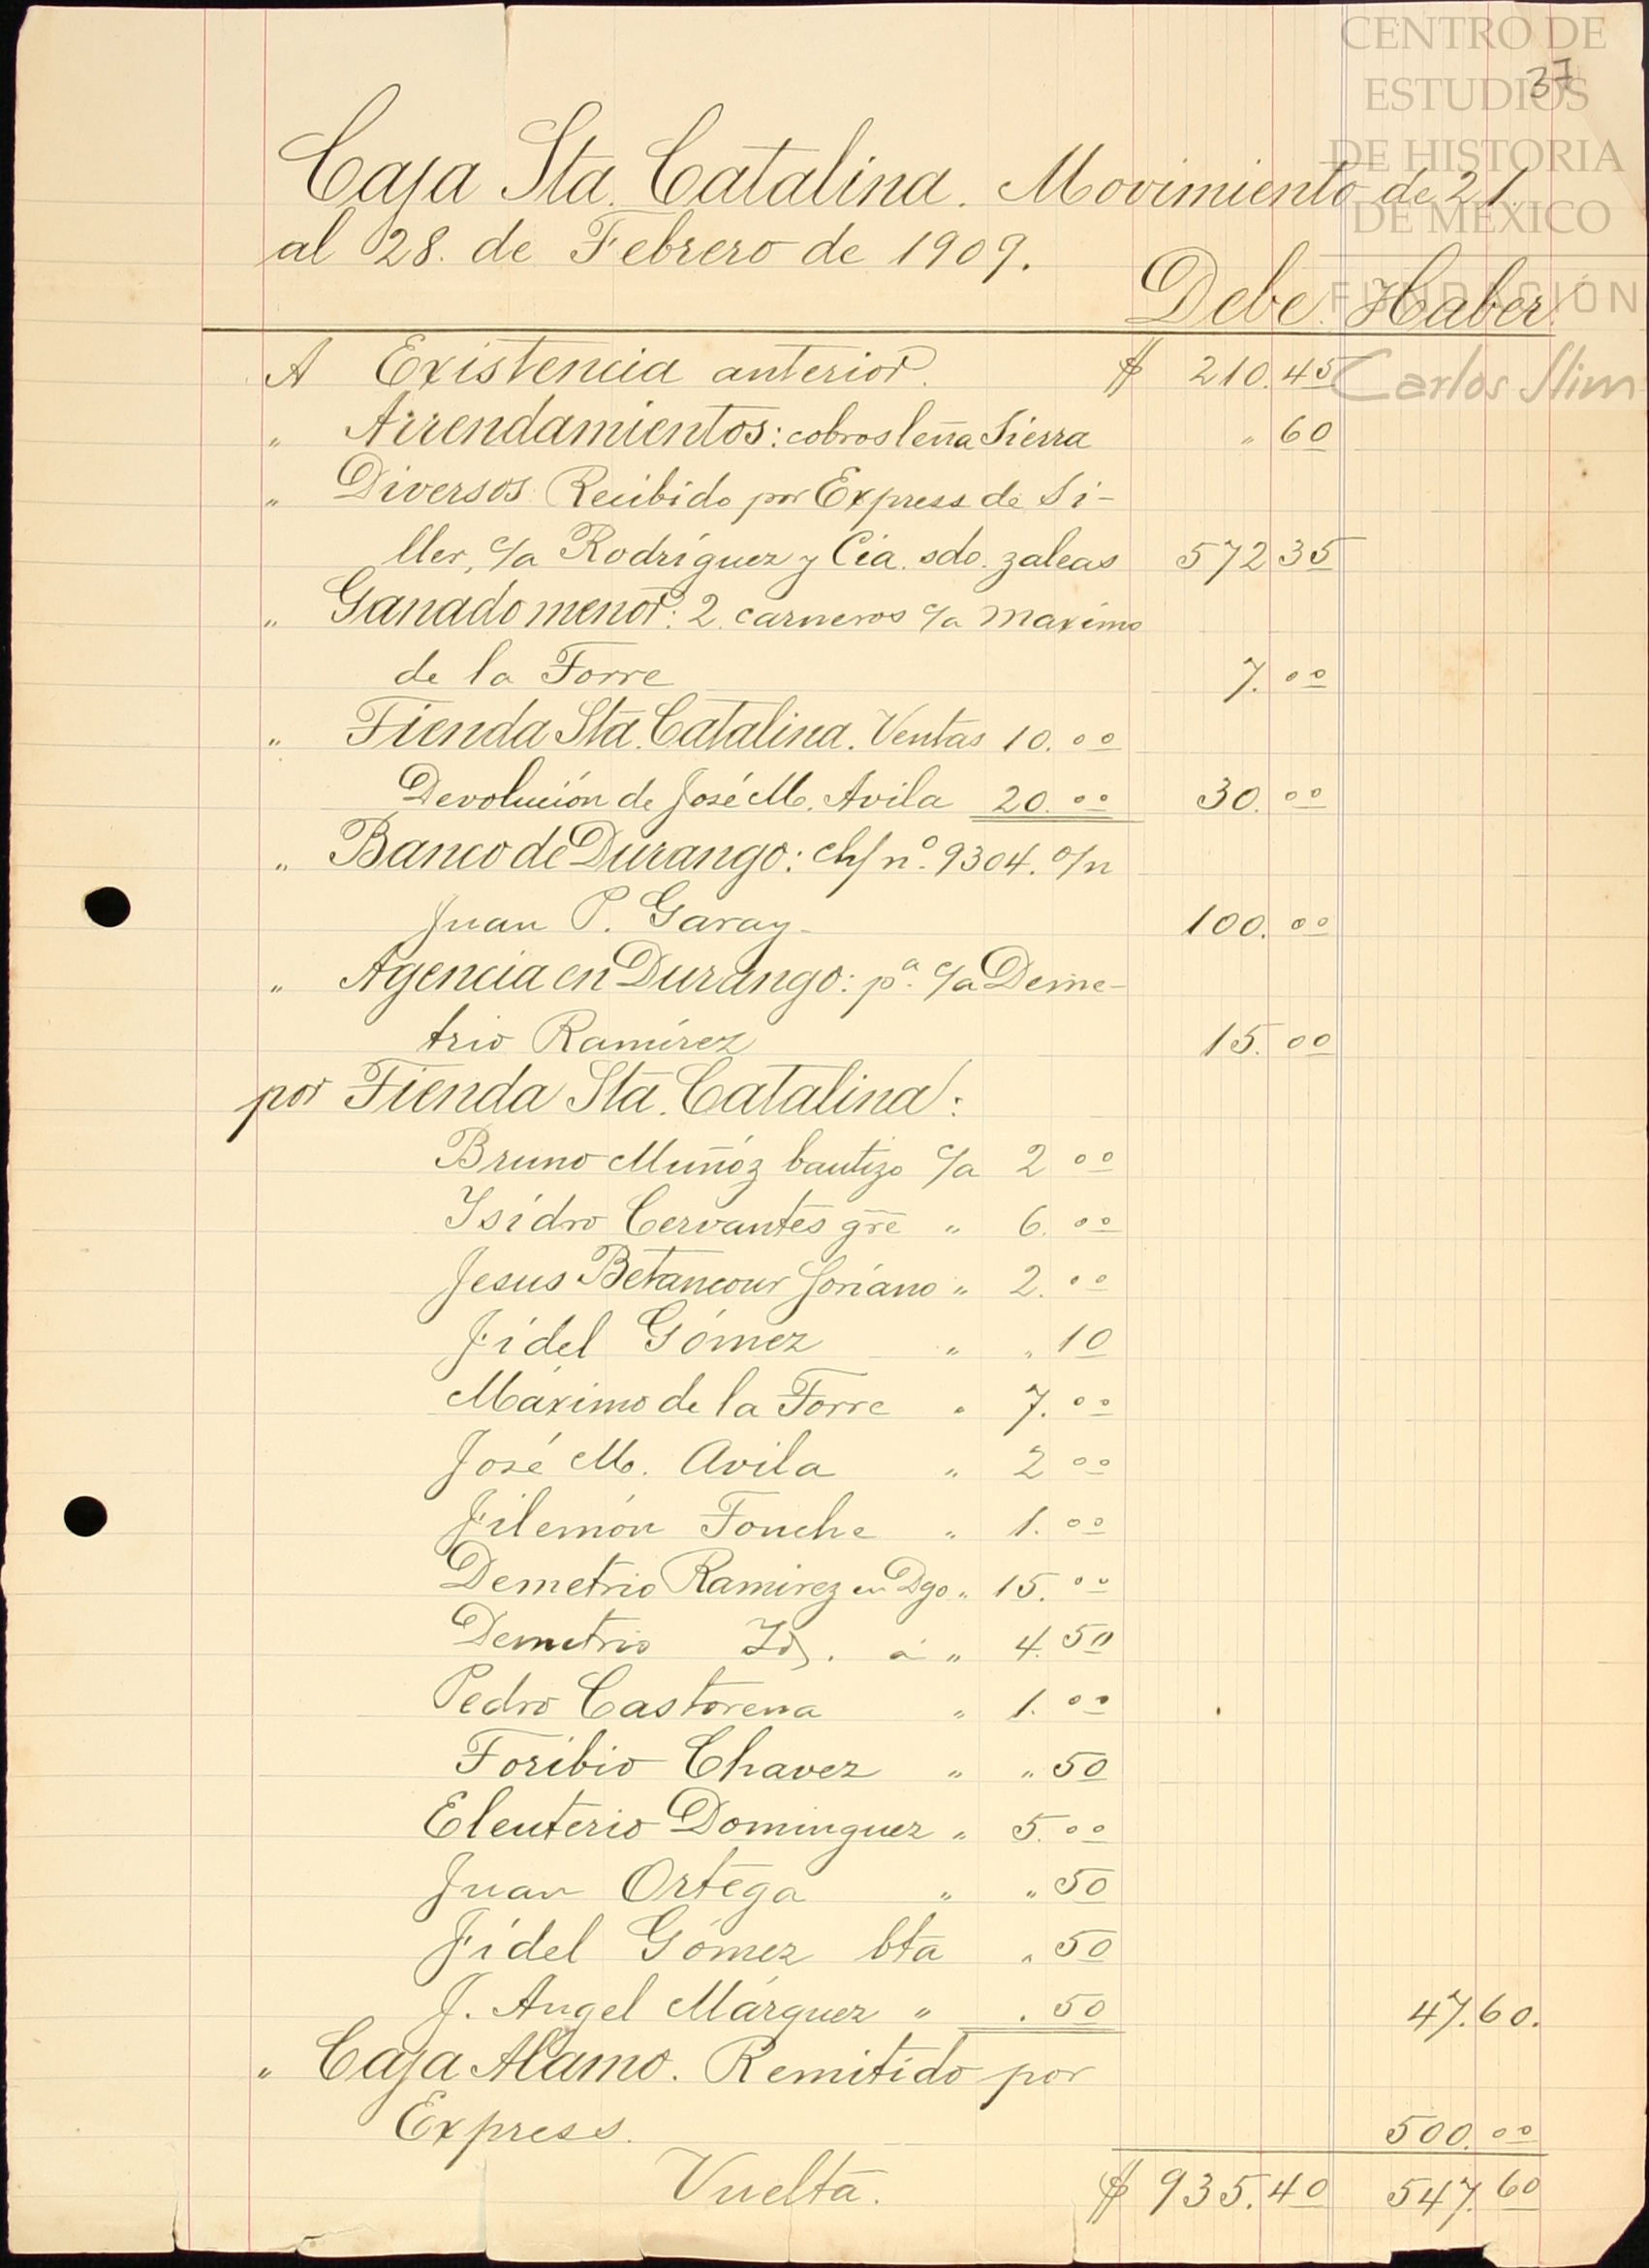 CENTRO DE
ESTUDIOS
DE HISTORIA
DE MÉXICO
FUNDACIÓN
Carlos Slim
37
Caja Sta. Catalina. Movimiento de 21.
al 28. de Febrero de 1909.
Debe. Haber.
A Existencia anterior. $ 210.45
„ Arrendamientos: cobros leña Sierra „ 60
„ Diversos: Recibido por Express de Si-
ller, c/a Rodríguez y Cia. sdo. zaleas 572 35
„ Ganado menor: 2. carneros c/a Maximo
de la Torre 7.00
„ Tienda Sta. Catalina. Ventas 10.00
Devolución de José M. Avila 20.00 30.00
„ Banco de Durango: ch/ nº. 9304. o/n
Juan P. Garay- 100.00
„ Agencia en Durango: pª. c/a Deme-
trio Ramírez 15.00
por Tienda Sta. Catalina:
Bruno Muñóz bautizo c/a 2 00
Isídro Cervantes gre „ 6.00
Jesus Betancour Soriano „ 2.00
Fidel Gómez „ „ 10
Máximo de la Torre „ 7.00
José M. Avila „ 2 00
Filemón Fouche „ 1.00
Demetrio Ramirez en Dgo „ 15.00
Demetrio Id. a „ 4.50
Pedro Castorena „ 1.00
Toribio Chavez „ „ 50
Eleuterio Dominguez „ 5.00
Juan Ortega „ „ 50
Fidel Gómez bta „ 50
J. Angel Márquez „ . 50 47.60.
„ Caja Alamo. Remitido por
Express. 500.00
Vuelta. $ 935.40 547.60